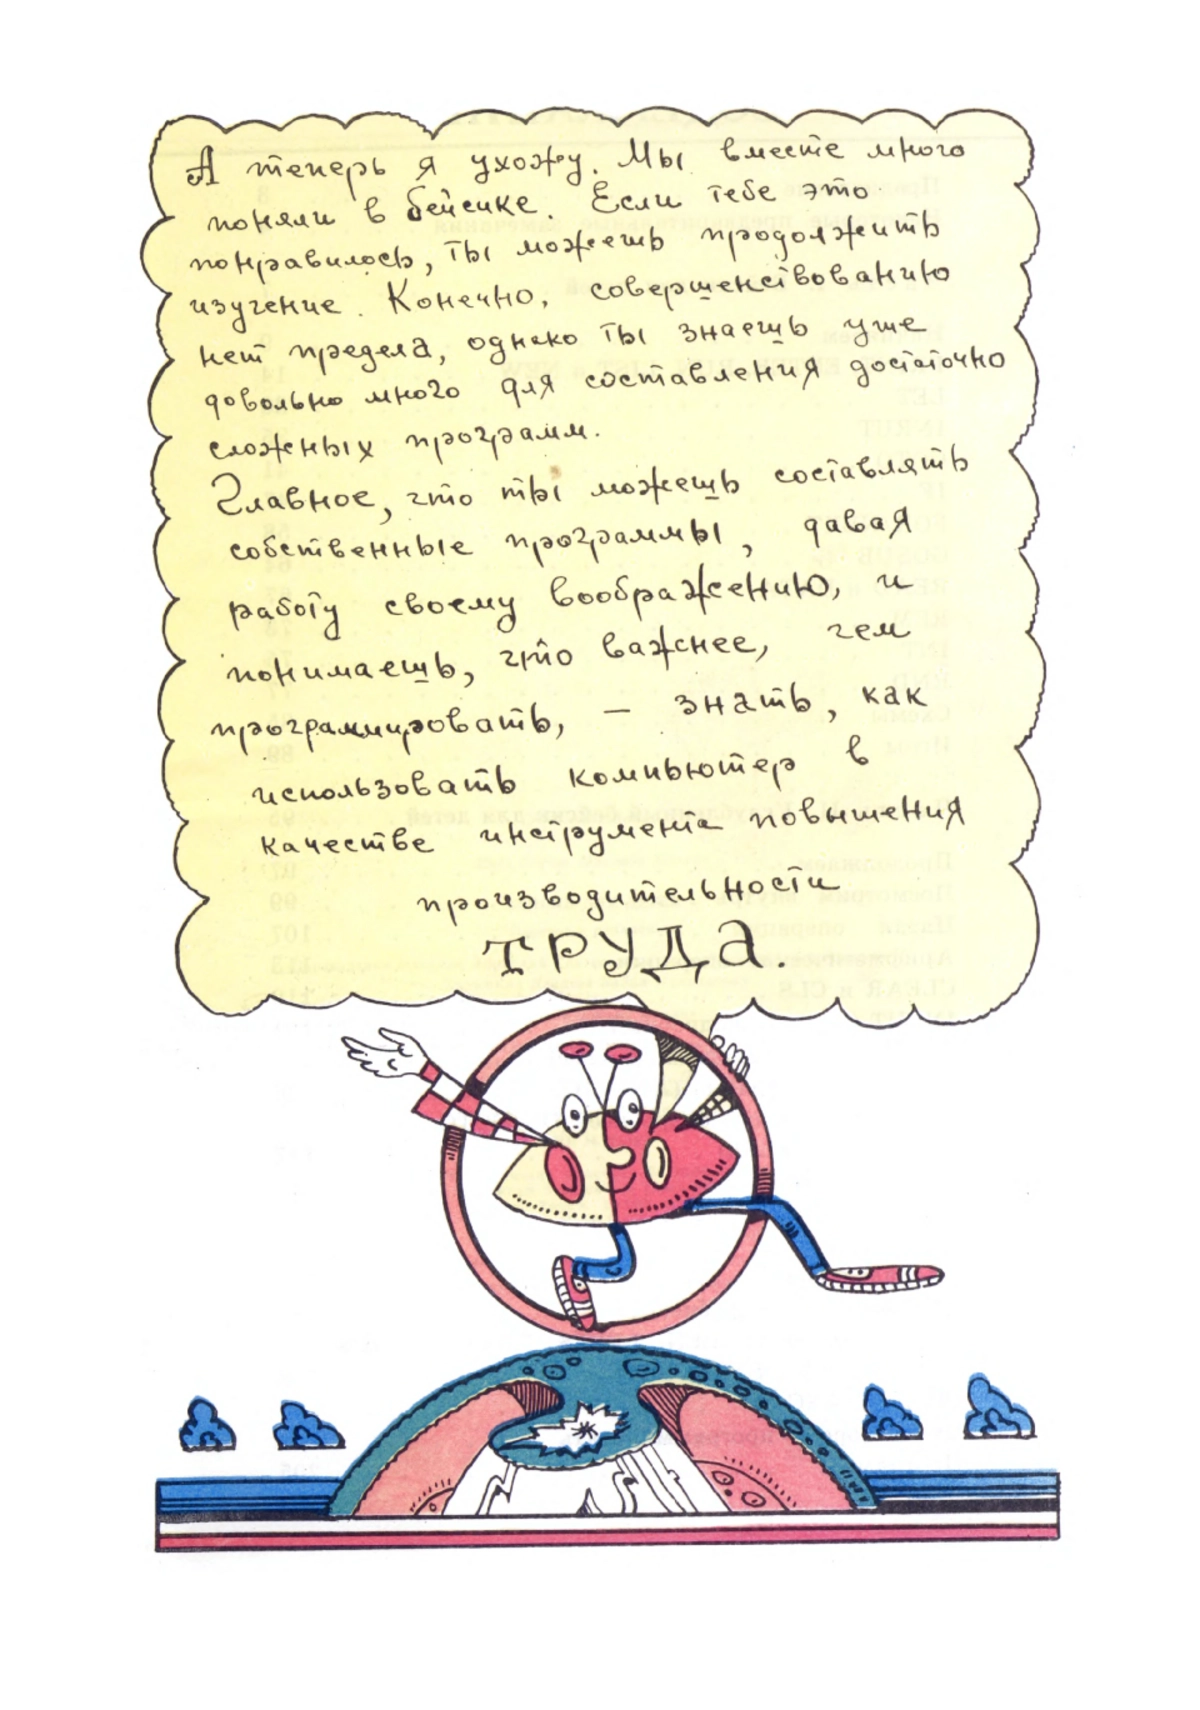 А теперь я ухожу. Мы вместе много
поняли в бейсике. Если тебе это
понравилось, ты можешь продолжить
изучение. Конечно, совершенствованию
нет предела, однако ты знаешь уже
довольно много для составления достаточно
сложных программ.
Главное, что ты можешь составлять
собственные программы, давая
работу своему воображению, и
понимаешь, что важнее, чем
программировать, – знать, как
использовать компьютер в
качестве инструмента повышения
производительности
ТРУДА.